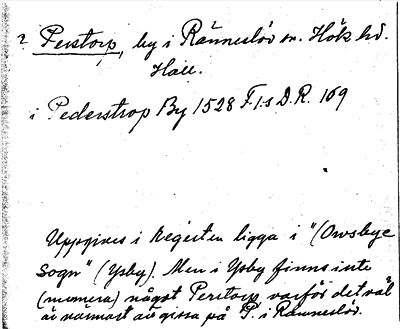 ? Perstorp, by i Ränneslöv sn. Höks hd.
Hall.
i Pederstrop By 1528 F1:s D.R. 169
Uppgives i registren ligga i "(Owsbye
Sogn" (Ysby). Men i Ysby finns inte
(numera) något Perstorp, varför det väl
är närmast att gissa på P. i Ränneslöv.